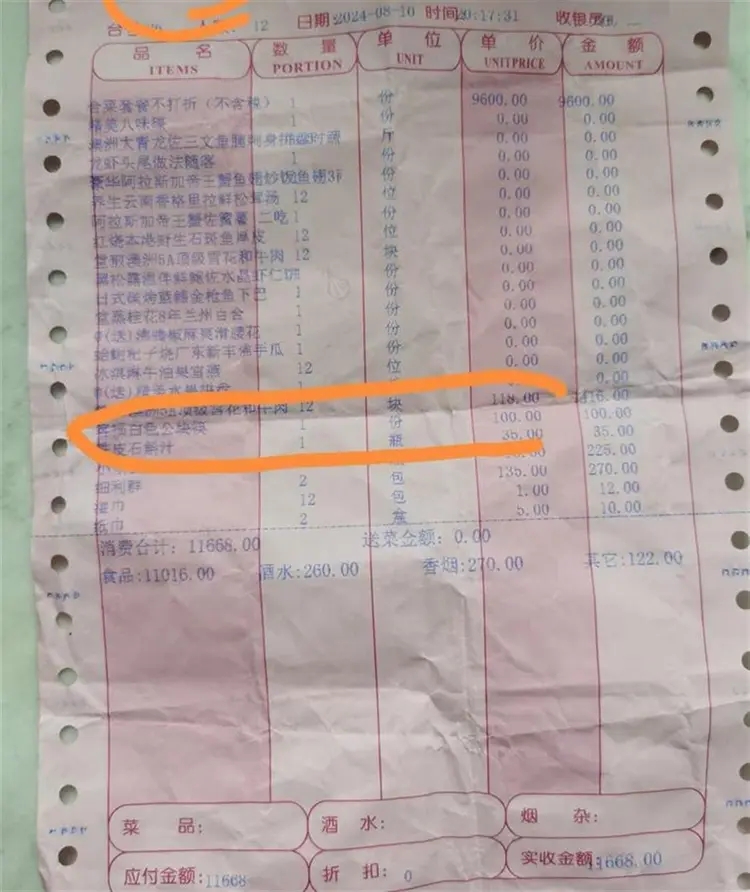 12 日期2024-08-10 时间20:17:31 收银员
品 名 数 量 单 位 单 价 金 额
ITEMS PORTION UNIT UNITPRICE AMOUNT
合菜套餐不打折（不含税） 1 份 9600.00 9600.00
精美八味碟 1 份 0.00 0.00
澳洲大青龙佐三文鱼腩刺身拼 斤 0.00 0.00
龙虾头尾做法随客 1 份 0.00 0.00
豪华阿拉斯加帝王蟹鱼翅炒饭鱼翅 份 0.00 0.00
养生云南香格里拉鲜松茸汤 12 位 0.00 0.00
阿拉斯加帝王蟹佐蜜薯 二吃 1 份 0.00 0.00
红烧本港野生石斑鱼厚皮 12 位 0.00 0.00
堂煎澳洲5A顶级雪花和牛肉 12 块 0.00 0.00
黑松露 伴鲜 佐水晶虾仁 份 0.00 0.00
日式碳烤蓝鳍金枪鱼下巴 1 份 0.00 0.00
堂蒸桂花8年兰州白合 1 份 0.00 0.00
(送)沸腾椒麻爽滑腰花 1 份 0.00 0.00
鲍 杞子烧广东新丰佛手瓜 1 份 0.00 0.00
冰淇淋牛油果宫燕 12 位 0.00 0.00
(送)精美水果拼盘 0.00 0.00
澳洲5A顶级雪花和牛肉 12 块 118.00 1416.00
白色公块筷 1 份 100.00 100.00
皮石斛汁 1 瓶 35.00 35.00
225.00
细利群 2 包 135.00 270.00
湿巾 12 包 1.00 12.00
纸巾 2 盒 5.00 10.00
消费合计: 11668.00 送菜金额: 0.00
食品:11016.00 酒水:260.00 香烟:270.00 其它:122.00
菜 品: 酒 水: 烟 杂:
应付金额:11668 折 扣: 0 实收金额:11668.00